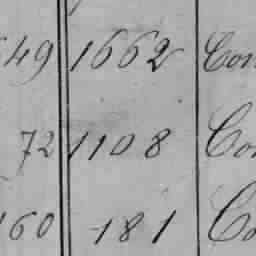 49 1662 Con
72 1108 Co
160 181 Co